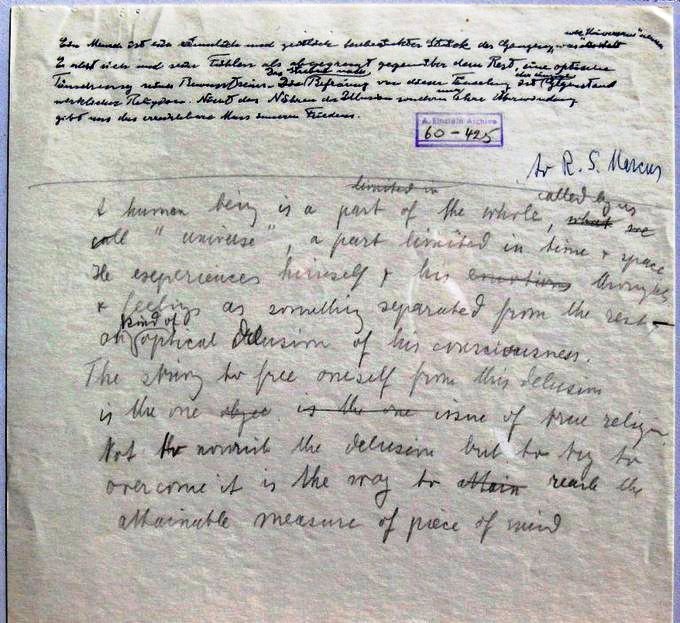 was wir "Universum" nennen
Ein Mensch ist ein räumlich und zeitlich beschränktes Stück des Ganzen,
Er erlebt sich und sein Fühlen als abgegrenzt gegenüber dem Rest, eine optische
Das Streben nach der einzige
Täuschung seines Bewusstseins. Die Befreiung von dieser Fesselung ist
wirklicher Religion. Nicht das Nähren der Illusion sondern nur ihre Überwindung
gibt uns das erreichbare Mass inneren Friedens.
A. Einstein Archive
60-425
to R. S. Marcus
limited in called by us
A human being is a part of the whole, what we
call "universe", a part limited in time + space
He experiences himself + his emotions thoughts
+ feelings as something separated from the rest -
kind of
an optical delusion of his consciousness.
The striving to free oneself from this delusion
is the one object is the one issue of true religion
Not to nourish the delusion but to try to
overcome it is the way to attain reach the
attainable measure of piece of mind